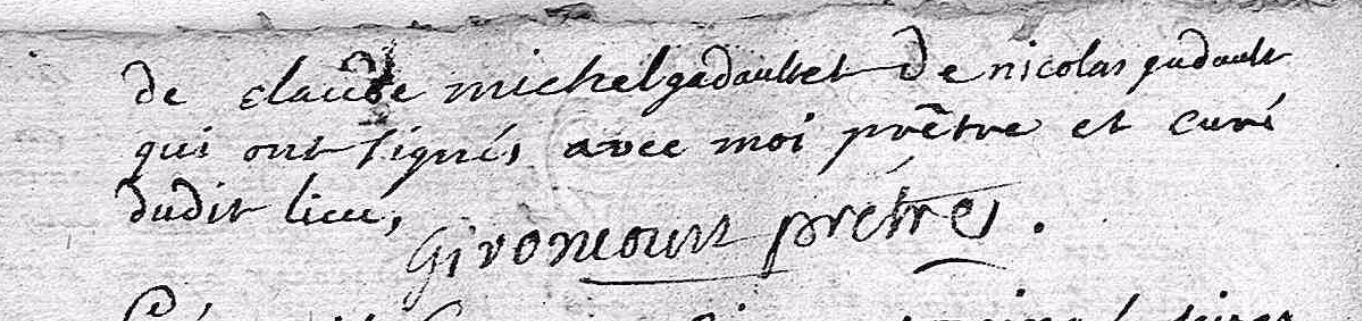 de claude michel gadault et De nicolas gadault
qui ont signés avec moi prêtre et curé
dudit lieu,
Givoncourt prêtre.